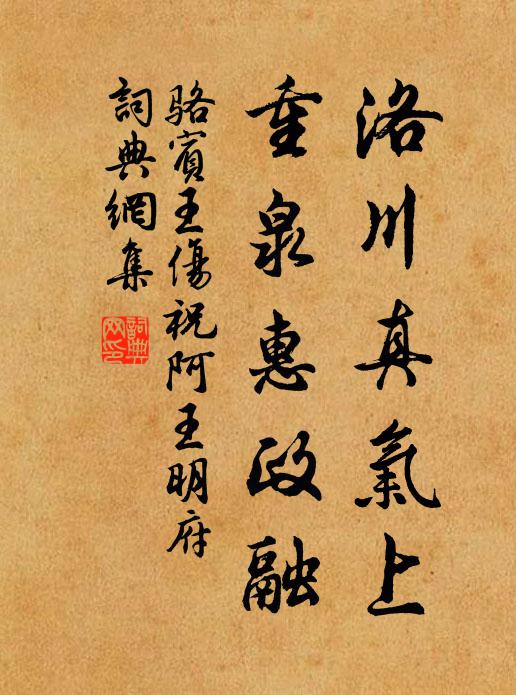 洛川真氣上
重泉惠政融
駱賓王傷祝阿王明府
詞典網集
詞典網印